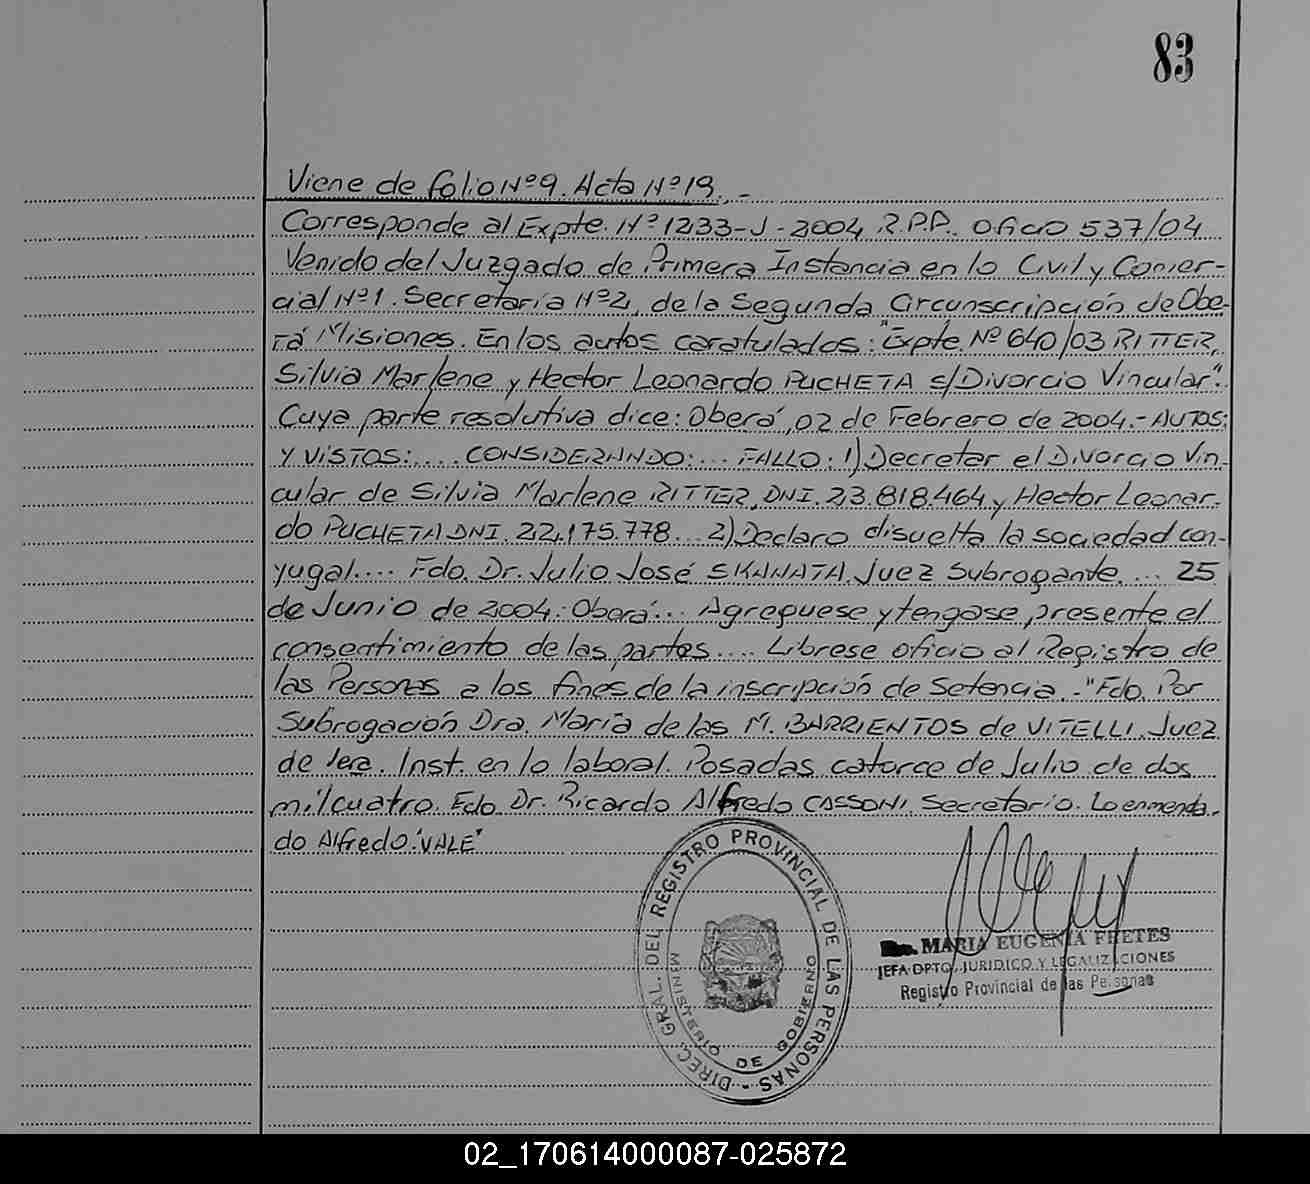 83
Viene de folio Nº 9. Acta Nº 19. -
Corresponde al Expte. Nº 1233-J-2004 R.P.P. Oficio 537/04
Venido del Juzgado de Primera Instancia en lo Civil y Comer-
cial Nº 1. Secretaría Nº 2, de la Segunda Circunscripción de Obe-
rá Misiones. En los autos caratulados: "Expte. Nº 640/03 RITTER,
Silvia Marlene y Hector Leonardo PUCHETA s/Divorcio Vincular".
Cuya parte resolutiva dice: Oberá, 02 de Febrero de 2004.- AUTOS:
Y VISTOS:.... CONSIDERANDO:... FALLO: 1) Decretar el Divorcio Vin-
cular de Silvia Marlene RITTER, DNI. 23.818.464 y Hector Leonar-
do PUCHETA DNI. 22.175.778... 2) Declaro disuelta la sociedad con-
yugal.... Fdo. Dr. Julio José SKANATA. Juez Subrogante.... 25
de Junio de 2004: Oberá... Agreguese y tengase presente el
consentimiento de las partes.... Librese oficio al Registro de
las Personas a los fines de la inscripción de Setencia.-"Fdo. Por
Subrogación Dra. María de las M. BARRIENTOS de VITELLI. Juez
de 1era. Inst. en lo laboral. Posadas catorce de Julio de dos
mil cuatro. Fdo. Dr. Ricardo Alfredo CASSONI. Secretario. Lo enmenda-
do Alfredo. "VALE"
DIREC. GRAL. DEL REGISTRO PROVINCIAL DE LAS PERSONAS -
MINISTERIO DE GOBIERNO
MARIA EUGENIA FRETES
JEFA DPTO. JURIDICO Y LEGALIZACIONES
Registro Provincial de las Personas
02_170614000087-025872